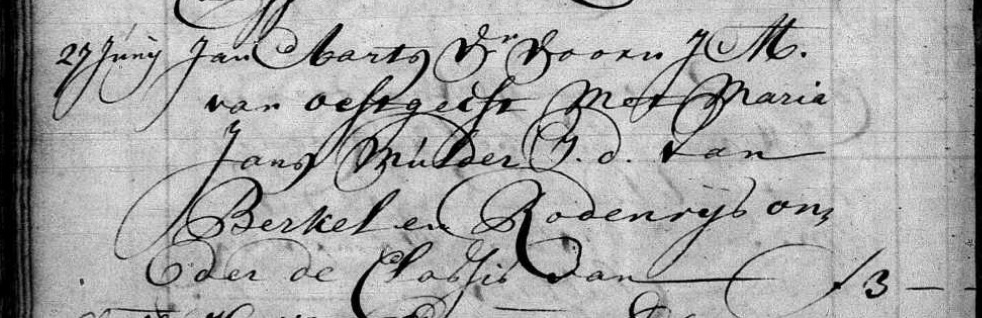 27 Junij Jan Aarts Vr Doorn J M.
van oestgeest Met Maria
Jans Mulder J. d. van
Berkel en Rodenrijs on,
der de Classis van f 3 — —